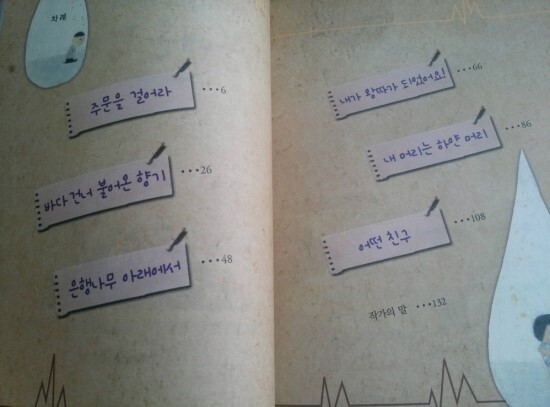 차례
주문을 걸어라 •••6
바다 건너 불어온 향기 •••26
은행나무 아래에서 •••48
내가 왕따가 되었어요! •••66
내 머리는 하얀 머리 •••86
어떤 친구 •••108
작가의 말 •••132